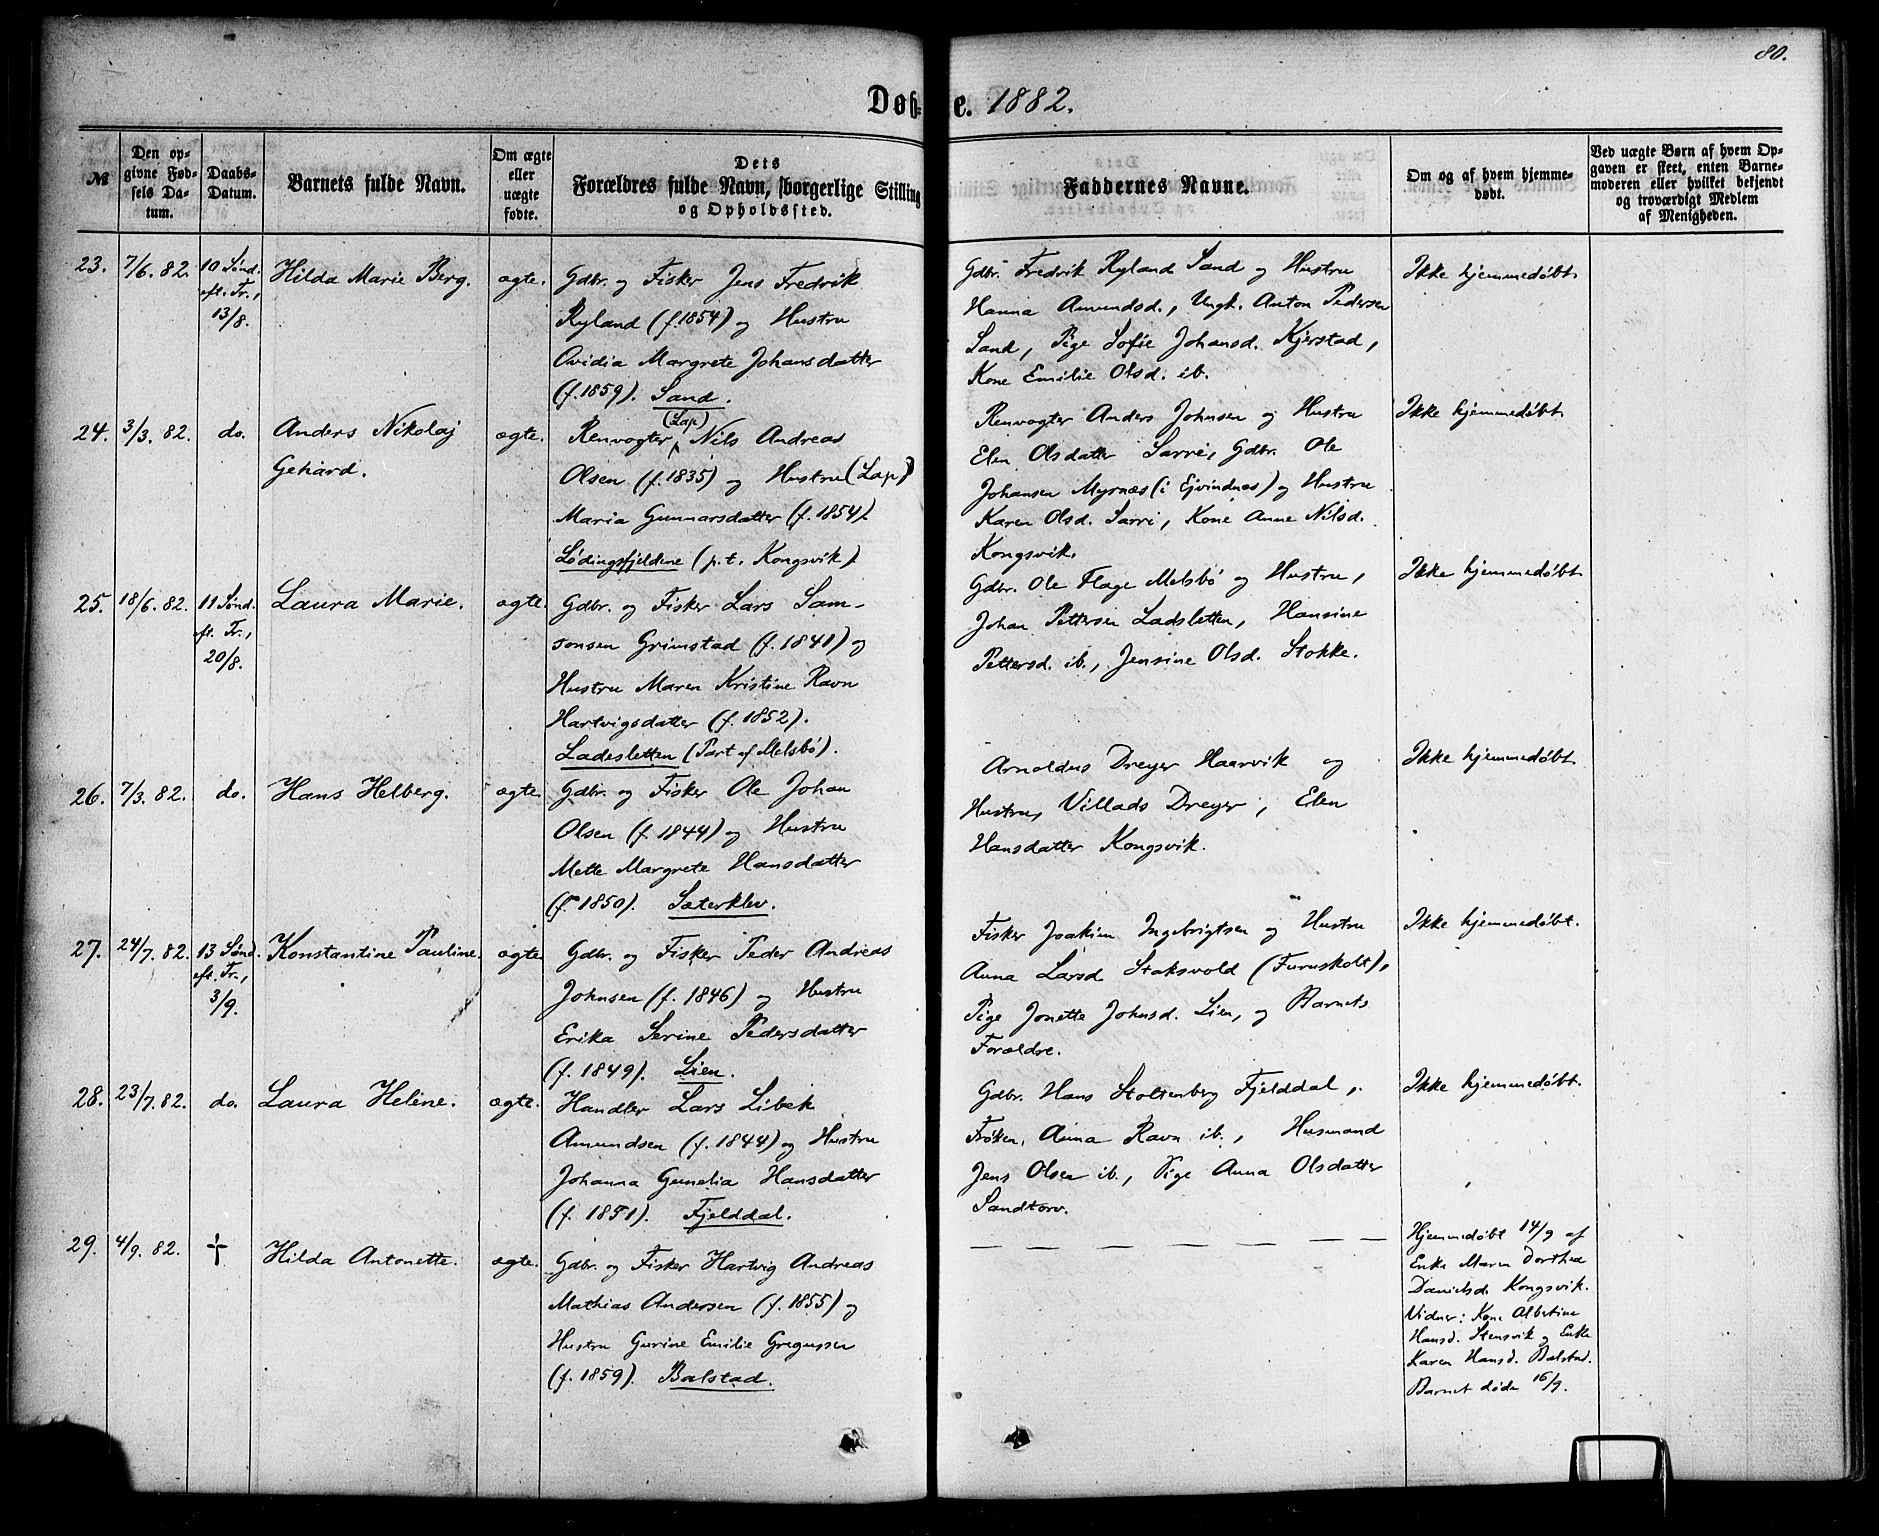 80.
Døbte. 1882.
№
Den opgivne Fødsels Datum.
Daabs-Datum.
Barnets fulde Navn.
Om ægte eller uægte fødte.
Dets Forældres fulde Navn, borgerlige Stilling og Opholdssted.
Faddernes Navne.
Om og af hvem hjemmedøbt.
Ved uægte Børn af hvem Opgaven er skeet, enten Barnemoderen eller hvilket bekjendt og troværdigt Medlem af Menigheden.
23. 7/6. 82. 10 Sønd. eft. Tr., 13/8. Hilda Marie Berg. ægte.
Gdbr. og Fisker Jens Fredrik
Ryland (f. 1854) og Hustru
Ovidia Margrete Johansdatter
(f. 1859). Sand.
Gdbr. Fredrik Ryland Sand og Hustru
Hanna Amundsd., Ungk. Anton Pedersen
Sand, Pige Sofie Johansd. Kjerstad,
Kone Emilie Olsd. ib.
Ikke hjemmedøbt.
24. 3/3. 82. do. Anders Nikolaj
Gehard.
ægte.
(Lap)
Renvogter Nils Andreas
Olsen (f. 1835) og Hustru (Lap)
Maria Gunnarsdatter (f. 1854).
Lødingsfjeldene (p.t. Kongsvik).
Renvogter Anders Johnsen og Hustru
Elen Olsdatter Sarri, Gdbr. Ole
Johansen Myrnæs (i Ejvindnæs) og Hustru
Karen Olsd. Sarri, Kone Anne Nilsd.
Kongsvik.
Ikke hjemmedøbt.
25. 18/6. 82. 11 Sønd. eft. Tr., 20/8. Laura Marie. ægte.
Gdbr. og Fisker Lars Sam-
sonsen Grimstad (f. 1841) og
Hustru Maren Kristine Ravn
Hartvigsdatter (f. 1852).
Ladesletten (Part af Melsbö).
Gdbr. Ole Flage Melsbö og Hustru,
Johan Pettersen Ladsletten, Hansine
Pettersd. ib., Jensine Olsd. Stokke.
Ikke hjemmedøbt.
26. 7/3. 82. do. Hans Helberg. ægte.
Gdbr. og Fisker Ole Johan
Olsen (f. 1844) og Hustru
Mette Margrete Hansdatter
(f. 1850). Sæterklev.
Arnoldus Dreyer Haarvik og
Hustru, Villads Dreyer, Elen
Hansdatter Kongsvik.
Ikke hjemmedøbt.
27. 24/7. 82. 13 Sønd. eft. Tr., 3/9. Konstantine Pauline. ægte.
Gdbr. og Fisker Peder Andreas
Johnsen (f. 1846) og Hustru
Erika Serine Pedersdatter
(f. 1849). Lien.
Fisker Joakim Ingebrigtsen og Hustru
Anna Larsd Staksvold (Furuskolt),
Pige Jonette Johnsd. Lien, og Barnets
Forældre.
Ikke hjemmedøbt.
28. 23/7. 82. do. Laura Heléne. ægte.
Handler Lars Libek
Amundsen (f. 1844) og Hustru
Johanna Gunelia Hansdatter
(f. 1851). Fjelddal.
Gdbr. Hans Stoltenberg Fjelddal,
Frøken Anna Ravn ib., Husmand
Jens Olsen ib., Pige Anna Olsdatter
Sandtorv.
Ikke hjemmedøbt.
29. 4/9. 82. † Hilda Antonette. ægte.
Gdbr. og Fisker Hartvig Andreas
Mathias Andersen (f. 1855) og
Hustru Gurine Emilie Gregussen
(f. 1859). Balstad.
— — — — — — — —
Hjemmedøbt 14/9 af
Enke Maren Dorthea
Danielsd. Kongsvik.
Vidner: Kone Albertine
Hansd. Stensvik og Enke
Karen Hansd. Balstad.
Barnet døde 16/9.